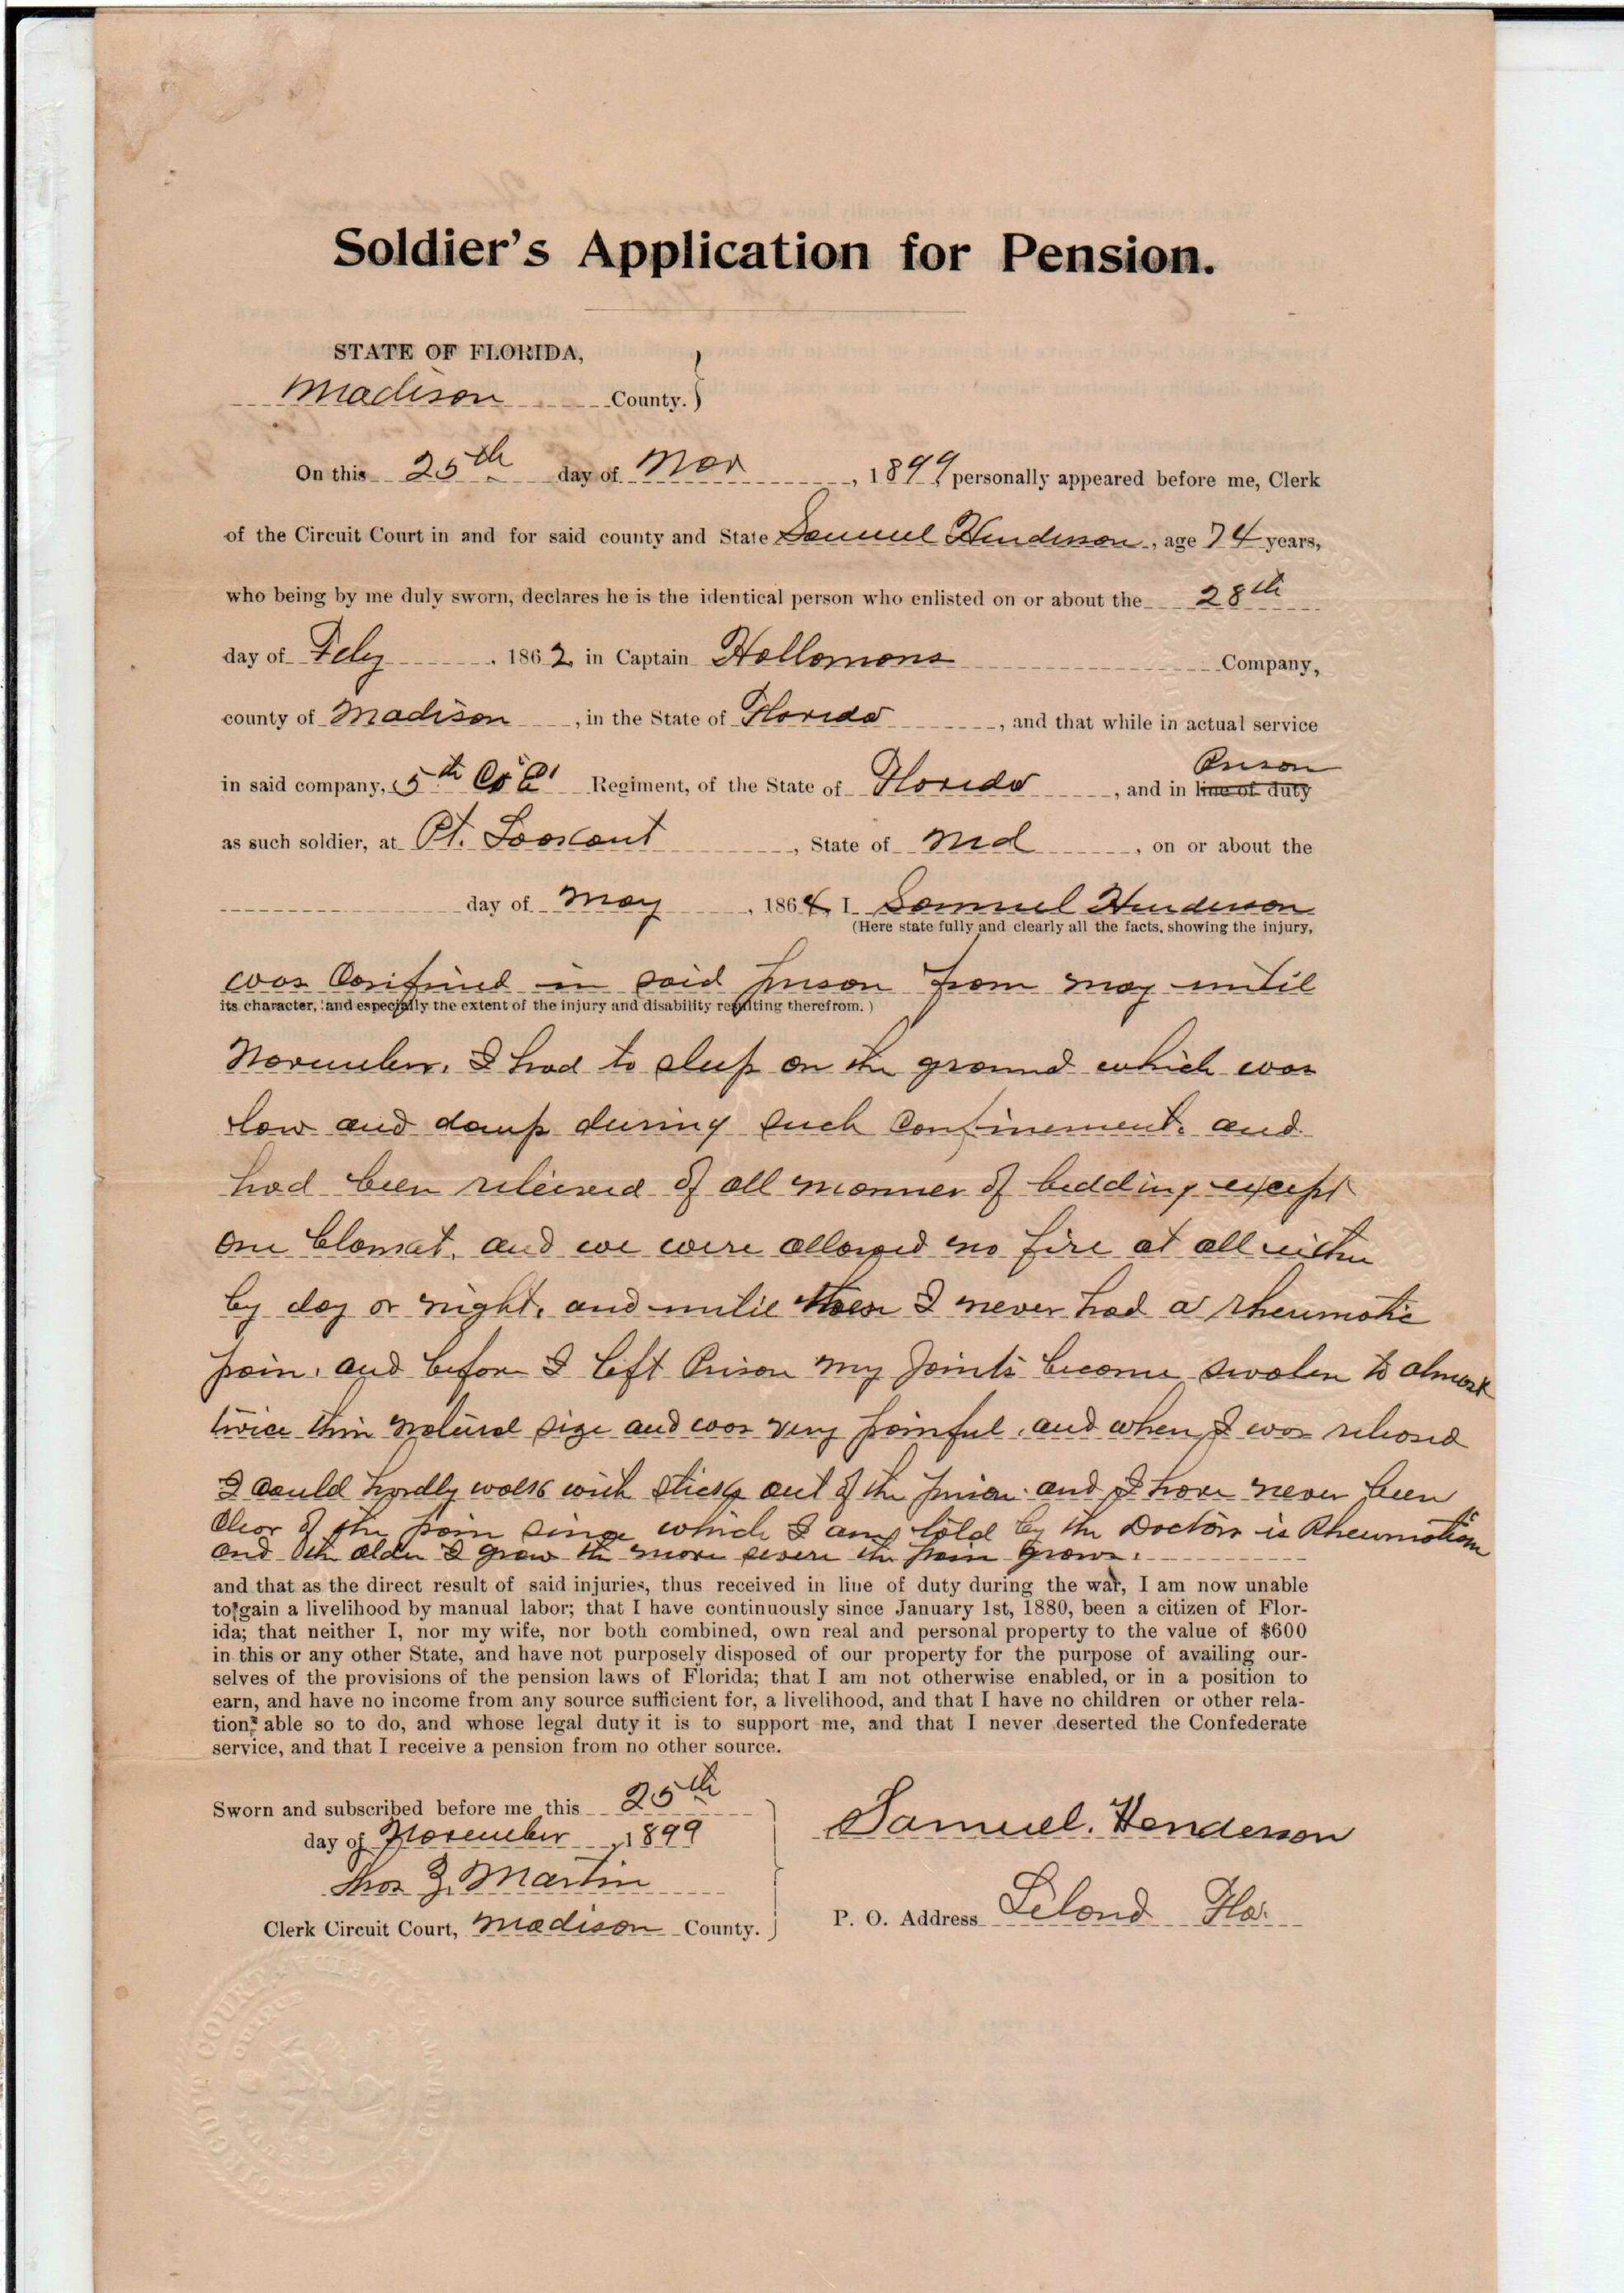 Soldier's Application for Pension.
STATE OF FLORIDA,
Madison County.
On this 25th day of Nov, 1899, personally appeared before me, Clerk
of the Circuit Court in and for said county and State Samuel Henderson, age 74 years,
who being by me duly sworn, declares he is the identical person who enlisted on or about the 28th
day of Feby, 1862, in Captain Hollomons Company,
county of Madison, in the State of Florida, and that while in actual service
Prison
in said company, 5th Co Regiment, of the State of Florida, and in line of duty
as such soldier, at Pt. Lookout, State of Md, on or about the
day of May, 1864, I Samuel Henderson
(Here state fully and clearly all the facts, showing the injury,
was Confined in said prison from May until
its character, and especially the extent of the injury and disability resulting therefrom.)
November. I had to sleep on the ground which was
low and damp during such Confinement. and
had been relieved of all manner of bedding except
one blanket. and we were allowed no fire at all either
by day or night. and until then I never had a rheumatic
pain. and before I left Prison my Joints become swolen to almost
twice their natural size and was very painful. and when I was released
I could hardly walk with sticks out of the prison. and I have never been
clear of the pain since which I am told by the Doctors is Rheumatism
and the older I grow the more severe the pain grows.
and that as the direct result of said injuries, thus received in line of duty during the war, I am now unable
to gain a livelihood by manual labor; that I have continuously since January 1st, 1880, been a citizen of Flor-
ida; that neither I, nor my wife, nor both combined, own real and personal property to the value of $600
in this or any other State, and have not purposely disposed of our property for the purpose of availing our-
selves of the provisions of the pension laws of Florida; that I am not otherwise enabled, or in a position to
earn, and have no income from any source sufficient for, a livelihood, and that I have no children or other rela-
tions able so to do, and whose legal duty it is to support me, and that I never deserted the Confederate
service, and that I receive a pension from no other source.
Sworn and subscribed before me this 25th
day of November, 1899
Thos Z. Martin
Clerk Circuit Court, Madison County.
Samuel. Henderson
P. O. Address Lelond Fla.
CIRCUIT COURT